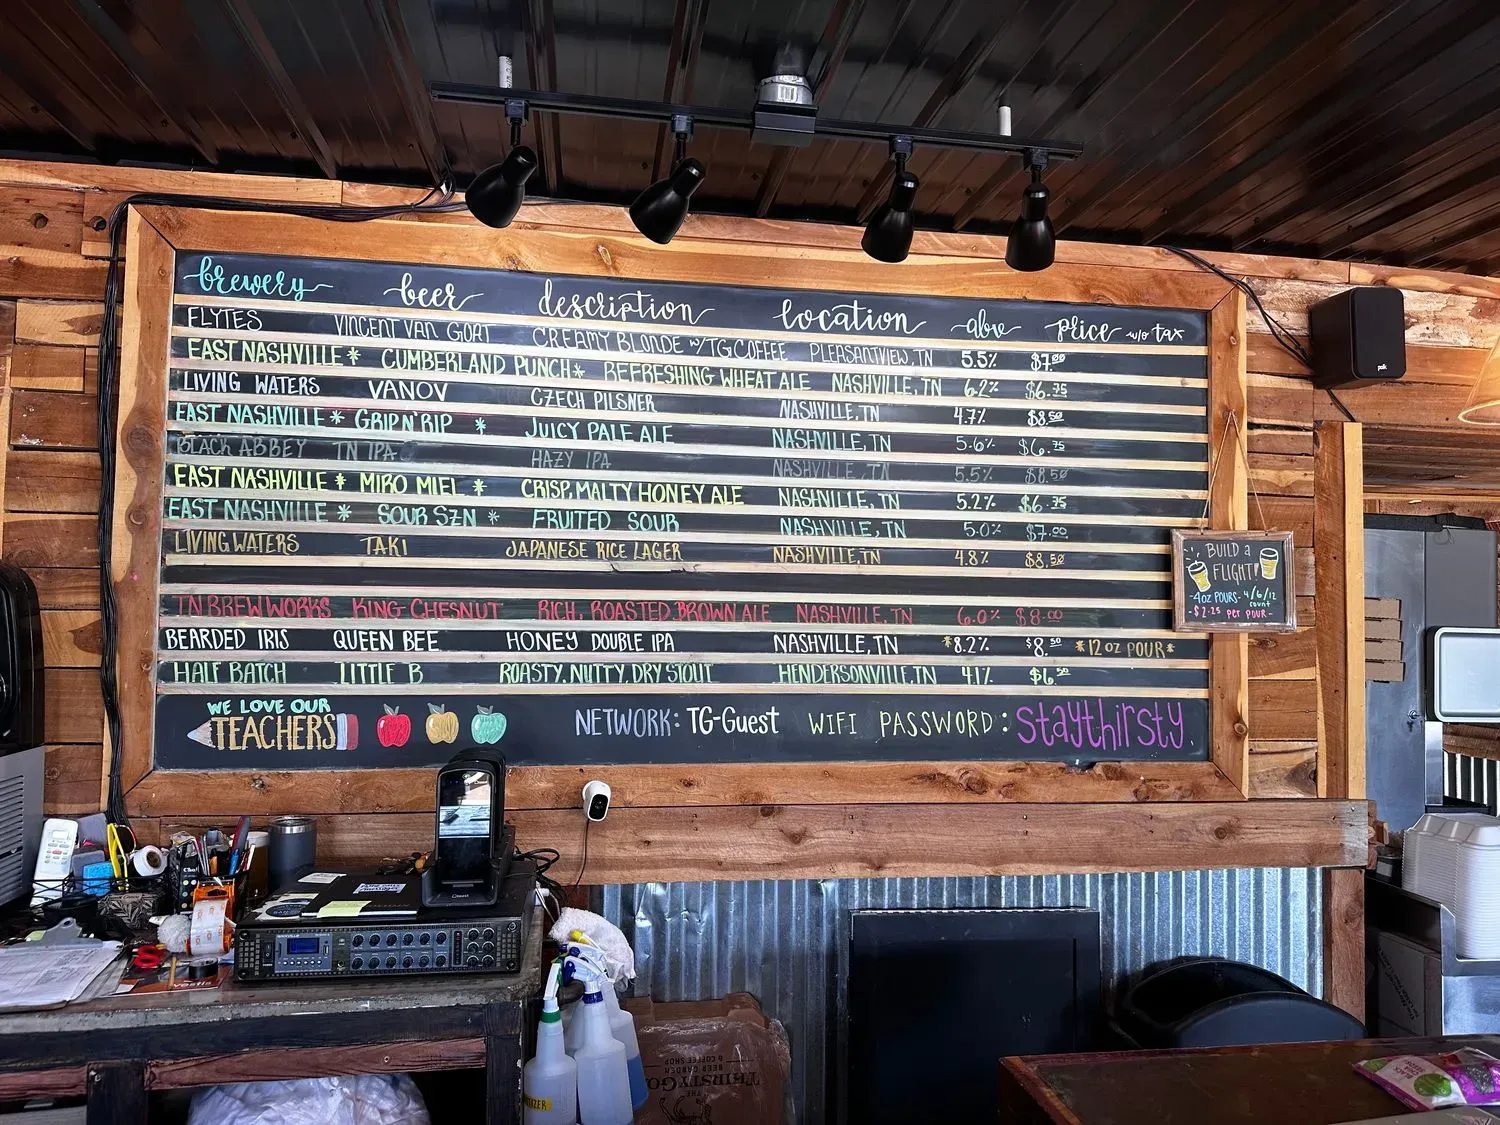 brewery beer description location abv price w/o tax
FLYTES VINCENT VAN GOAT CREAMY BLONDE W/TG COFFEE PLEASANTVIEW, TN 5.5% $7.00
EAST NASHVILLE * CUMBERLAND PUNCH * REFRESHING WHEAT ALE NASHVILLE, TN 6.2% $6.75
LIVING WATERS VANOV CZECH PILSNER NASHVILLE, TN 4.7% $8.50
EAST NASHVILLE * GRIP N' RIP * JUICY PALE ALE NASHVILLE, TN 5.6% $6.75
BLACK ABBEY TN IPA HAZY IPA NASHVILLE, TN 5.5% $8.50
EAST NASHVILLE * MIRO MIEL * CRISP, MALTY HONEY ALE NASHVILLE, TN 5.2% $6.75
EAST NASHVILLE * SOUR SZN * FRUITED SOUR NASHVILLE, TN 5.0% $7.00
LIVING WATERS TAKI JAPANESE RICE LAGER NASHVILLE, TN 4.8% $8.50
TN BREW WORKS KING CHESNUT RICH, ROASTED BROWN ALE NASHVILLE, TN 6.0% $8.00
BEARDED IRIS QUEEN BEE HONEY DOUBLE IPA NASHVILLE, TN *8.2% $8.50 *12 OZ POUR*
HALF BATCH LITTLE B ROASTY, NUTTY, DRY STOUT HENDERSONVILLE, TN 4.1% $6.50
WE LOVE OUR
TEACHERS
NETWORK: TG-Guest WIFI PASSWORD: staythirsty
BUILD a
FLIGHT!
-4oz POURS- 4/6/12
count
-$2.25 PER POUR-
polk
THIRSTY GOAT
BEER GARDEN
& COFFEE SHOP